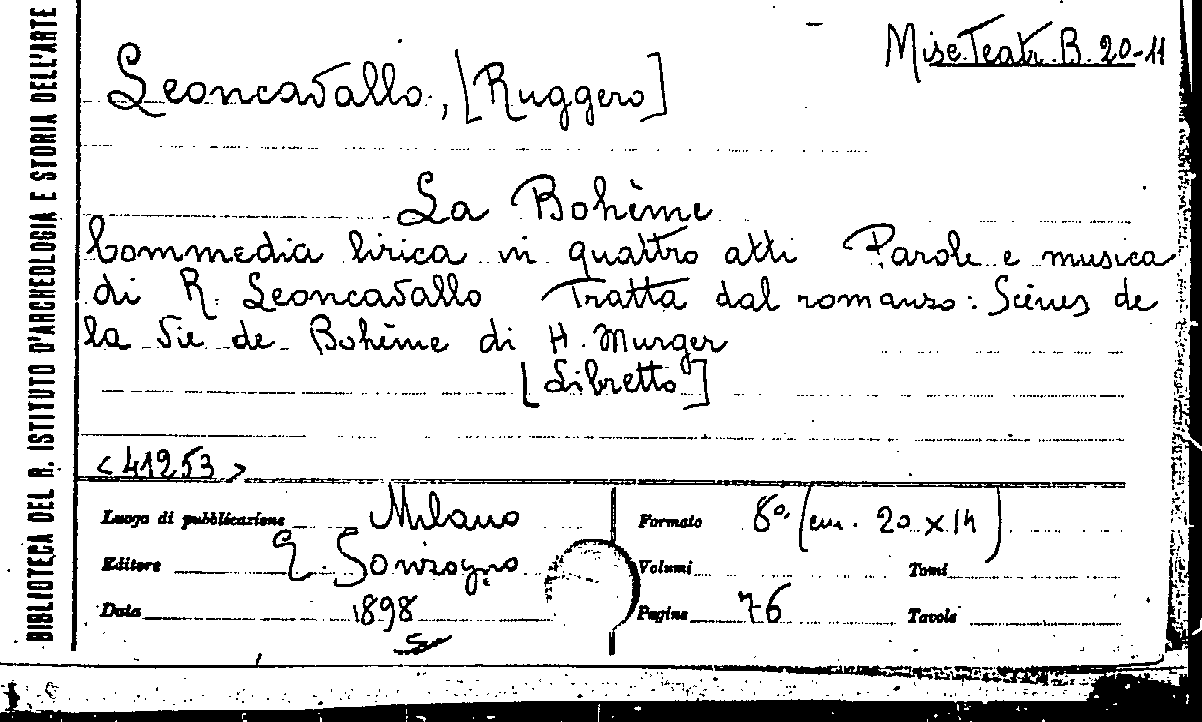 BIBLIOTECA DEL R. ISTITUTO D'ARCHEOLOGIA E STORIA DELL'ARTE
Misc. Teatr. B. 20-11
Leoncavallo, [Ruggero]
La Bohème
Commedia lirica in quattro atti Parole e musica
di R. Leoncavallo Tratta dal romanzo: Scènes de
la Vie de Bohème di H. Murger
[Libretto]
<41253>
Luogo di pubblicazione Milano
Editore E. Sonzogno
Data 1898
Formato 8° (cm. 20 x 14)
Volumi Tomi
Pagine 76 Tavole